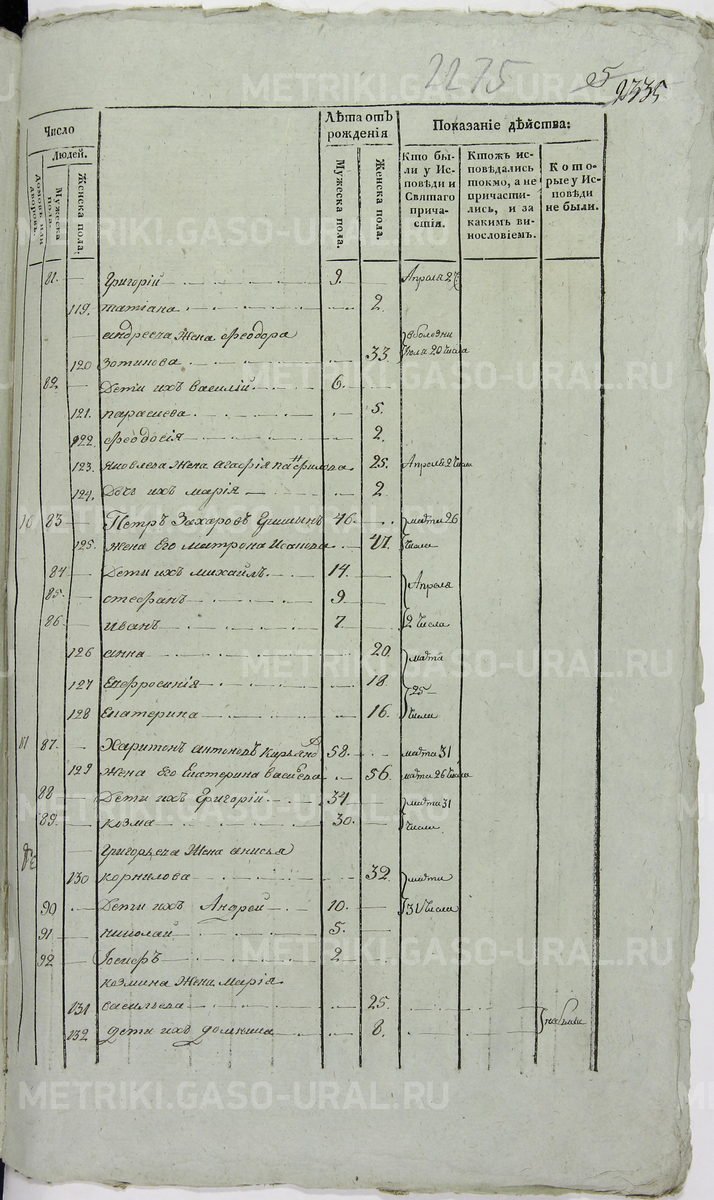 2275
5
2335
Число
Людей.
Домовъ или дворовъ.
Мужеска пола.
Женска пола.
Лѣта отъ рожденія
Мужеска пола.
Женска пола.
Показаніе дѣйства:
Кто бы-
ли у Ис-
повѣди и
Святаго
прича-
стія.
Ктожъ ис-
повѣдались
токмо, а не
причасти-
лись, и за
какимъ ви-
нословіемъ.
Кото-
рые у Ис-
повѣди
не были.
81. Григорій 9. Апреля 2
119. татіана 2
андреева жена Феодора
120 Зотикова 33
82. Дети ихъ василій 6.
121. парасиева 5.
122. феодосія 2.
123. яковлева жена агафія панфилова 25. Апреля 2 числа
124. Дочь ихъ марія 2
10 83 Петръ Захаровъ 46 марта 26
125. жена его матрона Исакова 47. числа
84 Дети ихъ михайлъ 14.
Апреля
85. стефанъ 9
86 иванъ 7 2 числа
126 анна 20. марта
127 Евфросинія 18 25
128 Екатерина 16. числа
11 87. Харитонъ антоновъ 58. марта 31
129 жена его Екатерина васильева 56. марта 26 числа
88 Дети ихъ Григорій 34 марта 31
89. козма 30. числа
Григорьева жена анисья
130 корнилова 32 марта
90 Дети ихъ Андрей 10. 31 числа
91 николай 5.
92 Іосифъ 2
козмина жена марія
131 васильева 25
132 дети ихъ домнина 8.
METRIKI.GASO-URAL.RU